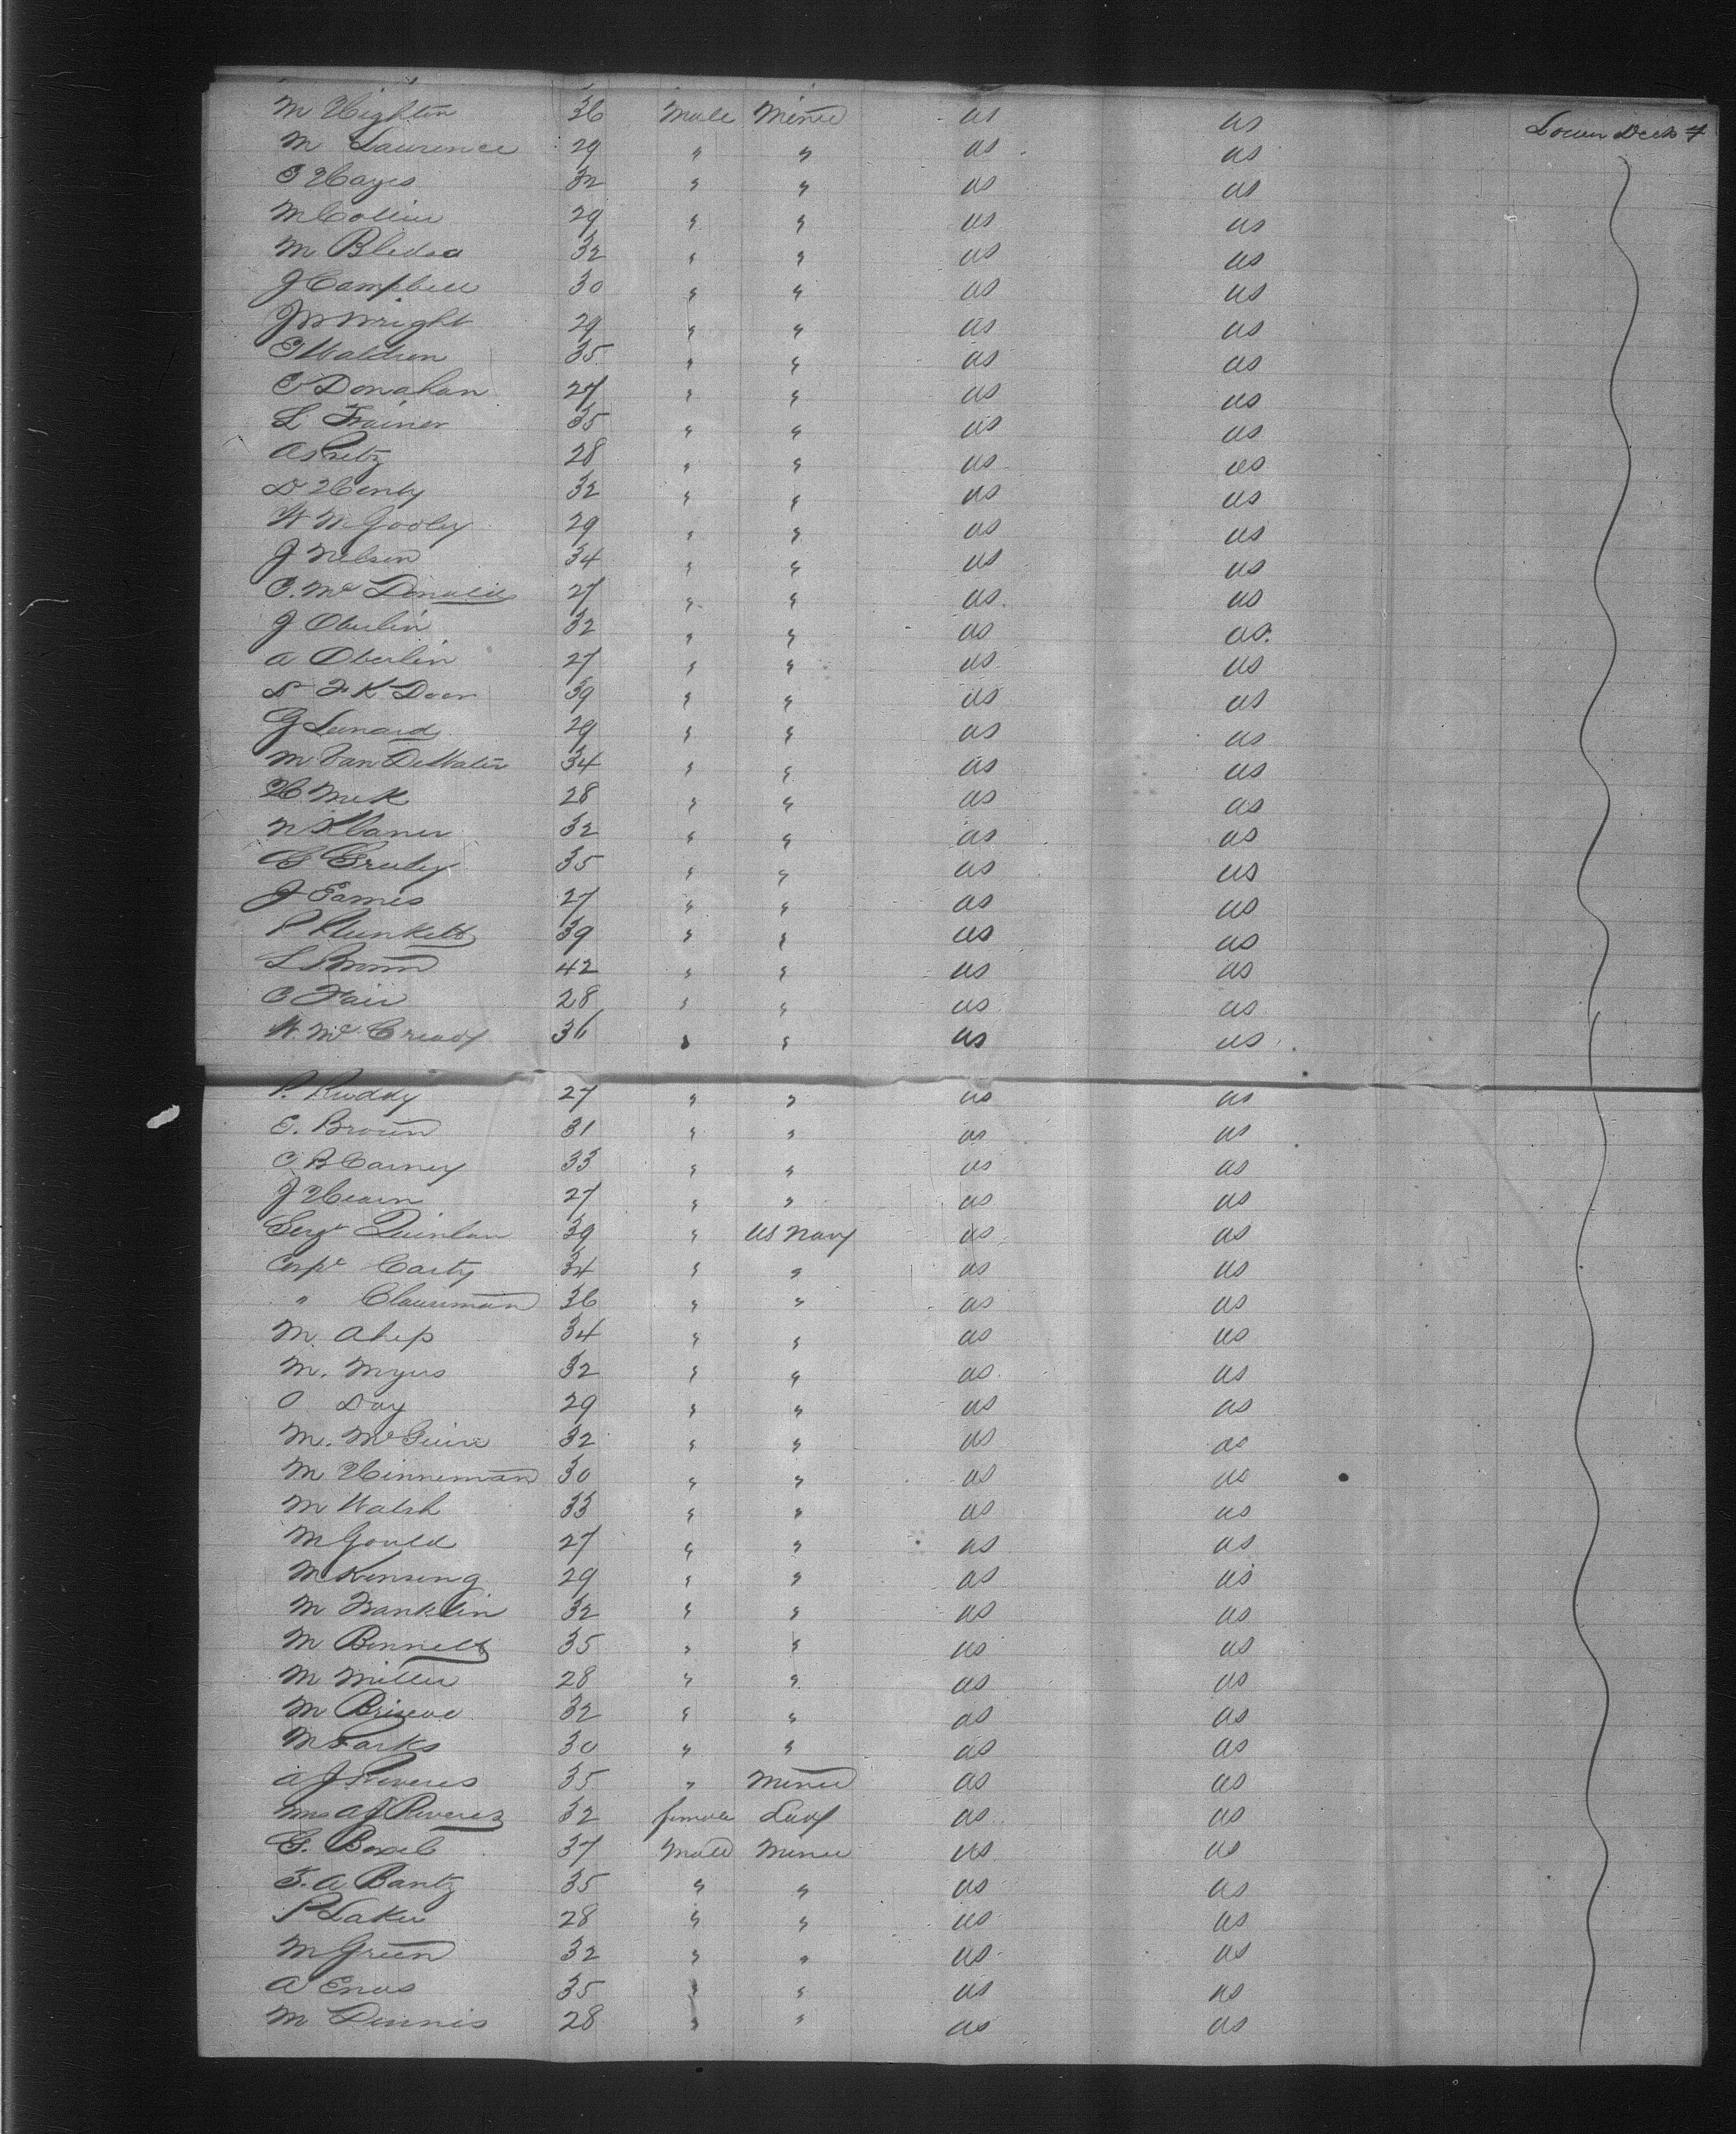 M Highton 36 Male Miner US US Lower Deck 4
M Laurence 29 " " US US
C Hayes 32 " " US US
M Collin 29 " " US US
M Bledsa 32 " " US US
J Campbell 30 " " US US
J W Wright 29 " " US US
C Waldron 35 " " US US
C Donahan 27 " " US US
L Frainer 35 " " US US
28 " " US US
D Henty 32 " " US US
W M Gooley 29 " " US US
J Nelson 34 " " US US
C. Mc Donald 27 " " US US
J Oberlin 32 " " US US
A Oberlin 27 " " US US
F K Door 39 " " US US
G Lenard 29 " " US US
M Van DeWater 34 " " US US
H Mek 28 " " US US
N Haner 32 " " US US
35 " " US US
J Eames 27 " " US US
P Plunkett 39 " " US US
L Brown 42 " " US US
C Fair 28 " " US US
W. Mc Cready 36 " " US US
P. Ruddy 27 " " US US
E. Brown 31 " " US US
C B Carney 33 " " US US
J Hearn 27 " " US US
Sergt Quinlan 39 " US Navy US US
Corpl Carty 34 " " US US
" Clauseman 36 " " US US
M Ahip 34 " " US US
M. Myers 32 " " US US
O Day 29 " " US US
M. McGuire 32 " " US US
M Hinneman 30 " " US US
M Walsh 33 " " US US
M Gould 27 " " US US
M Kensing 29 " " US US
M Franklin 32 " " US US
M Bennett 35 " " US US
M Miller 28 " " US US
M Briscoe 32 " " US US
M Parks 30 " " US US
A J Reveres 35 " Miner US US
Mrs A J Reveres 32 female Lady US US
G. Boxel 37 Male Miner US US
T. A Bantz 35 " " US US
P Laker 28 " " US US
M Green 32 " " US US
A Enos 35 " " US US
M Dennis 28 " " US US